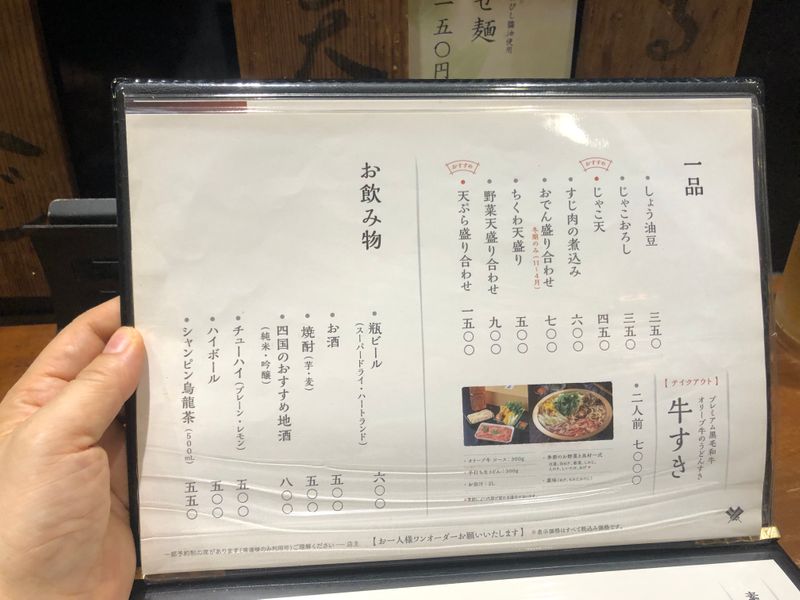 せ麺
びし醤油使用
一五〇円
天
る
一品
・しょう油豆 三五〇
・じゃこおろし 三五〇
おすすめ
・じゃこ天 四五〇
・すじ肉の煮込み 六〇〇
・おでん盛り合わせ 七〇〇
冬期のみ(11〜4月)
・ちくわ天盛り 五〇〇
・野菜天盛り合わせ 九〇〇
おすすめ
・天ぷら盛り合わせ 一五〇〇
【テイクアウト】
プレミアム黒毛和牛
オリーブ牛のうどんすき
牛すき
・二人前 七〇〇〇
・オリーブ牛 ロース:300g
・平打ち生うどん:300g
・お出汁:2L
・季節のお野菜と具材一式
お飲み物
・瓶ビール 六〇〇
(スーパードライ・ハートランド)
・お酒 五〇〇
・焼酎(芋・麦) 五〇〇
・四国のおすすめ地酒 八〇〇
(純米・吟醸)
・チューハイ(プレーン・レモン) 五〇〇
・ハイボール 五〇〇
・シャンピン烏龍茶(500mL) 五五〇
【お一人様ワンオーダーお願いいたします】 ※表示価格はすべて税込み価格です。
一部予約制の席があります(常連様のみ利用可)ご理解ください── 店主
素